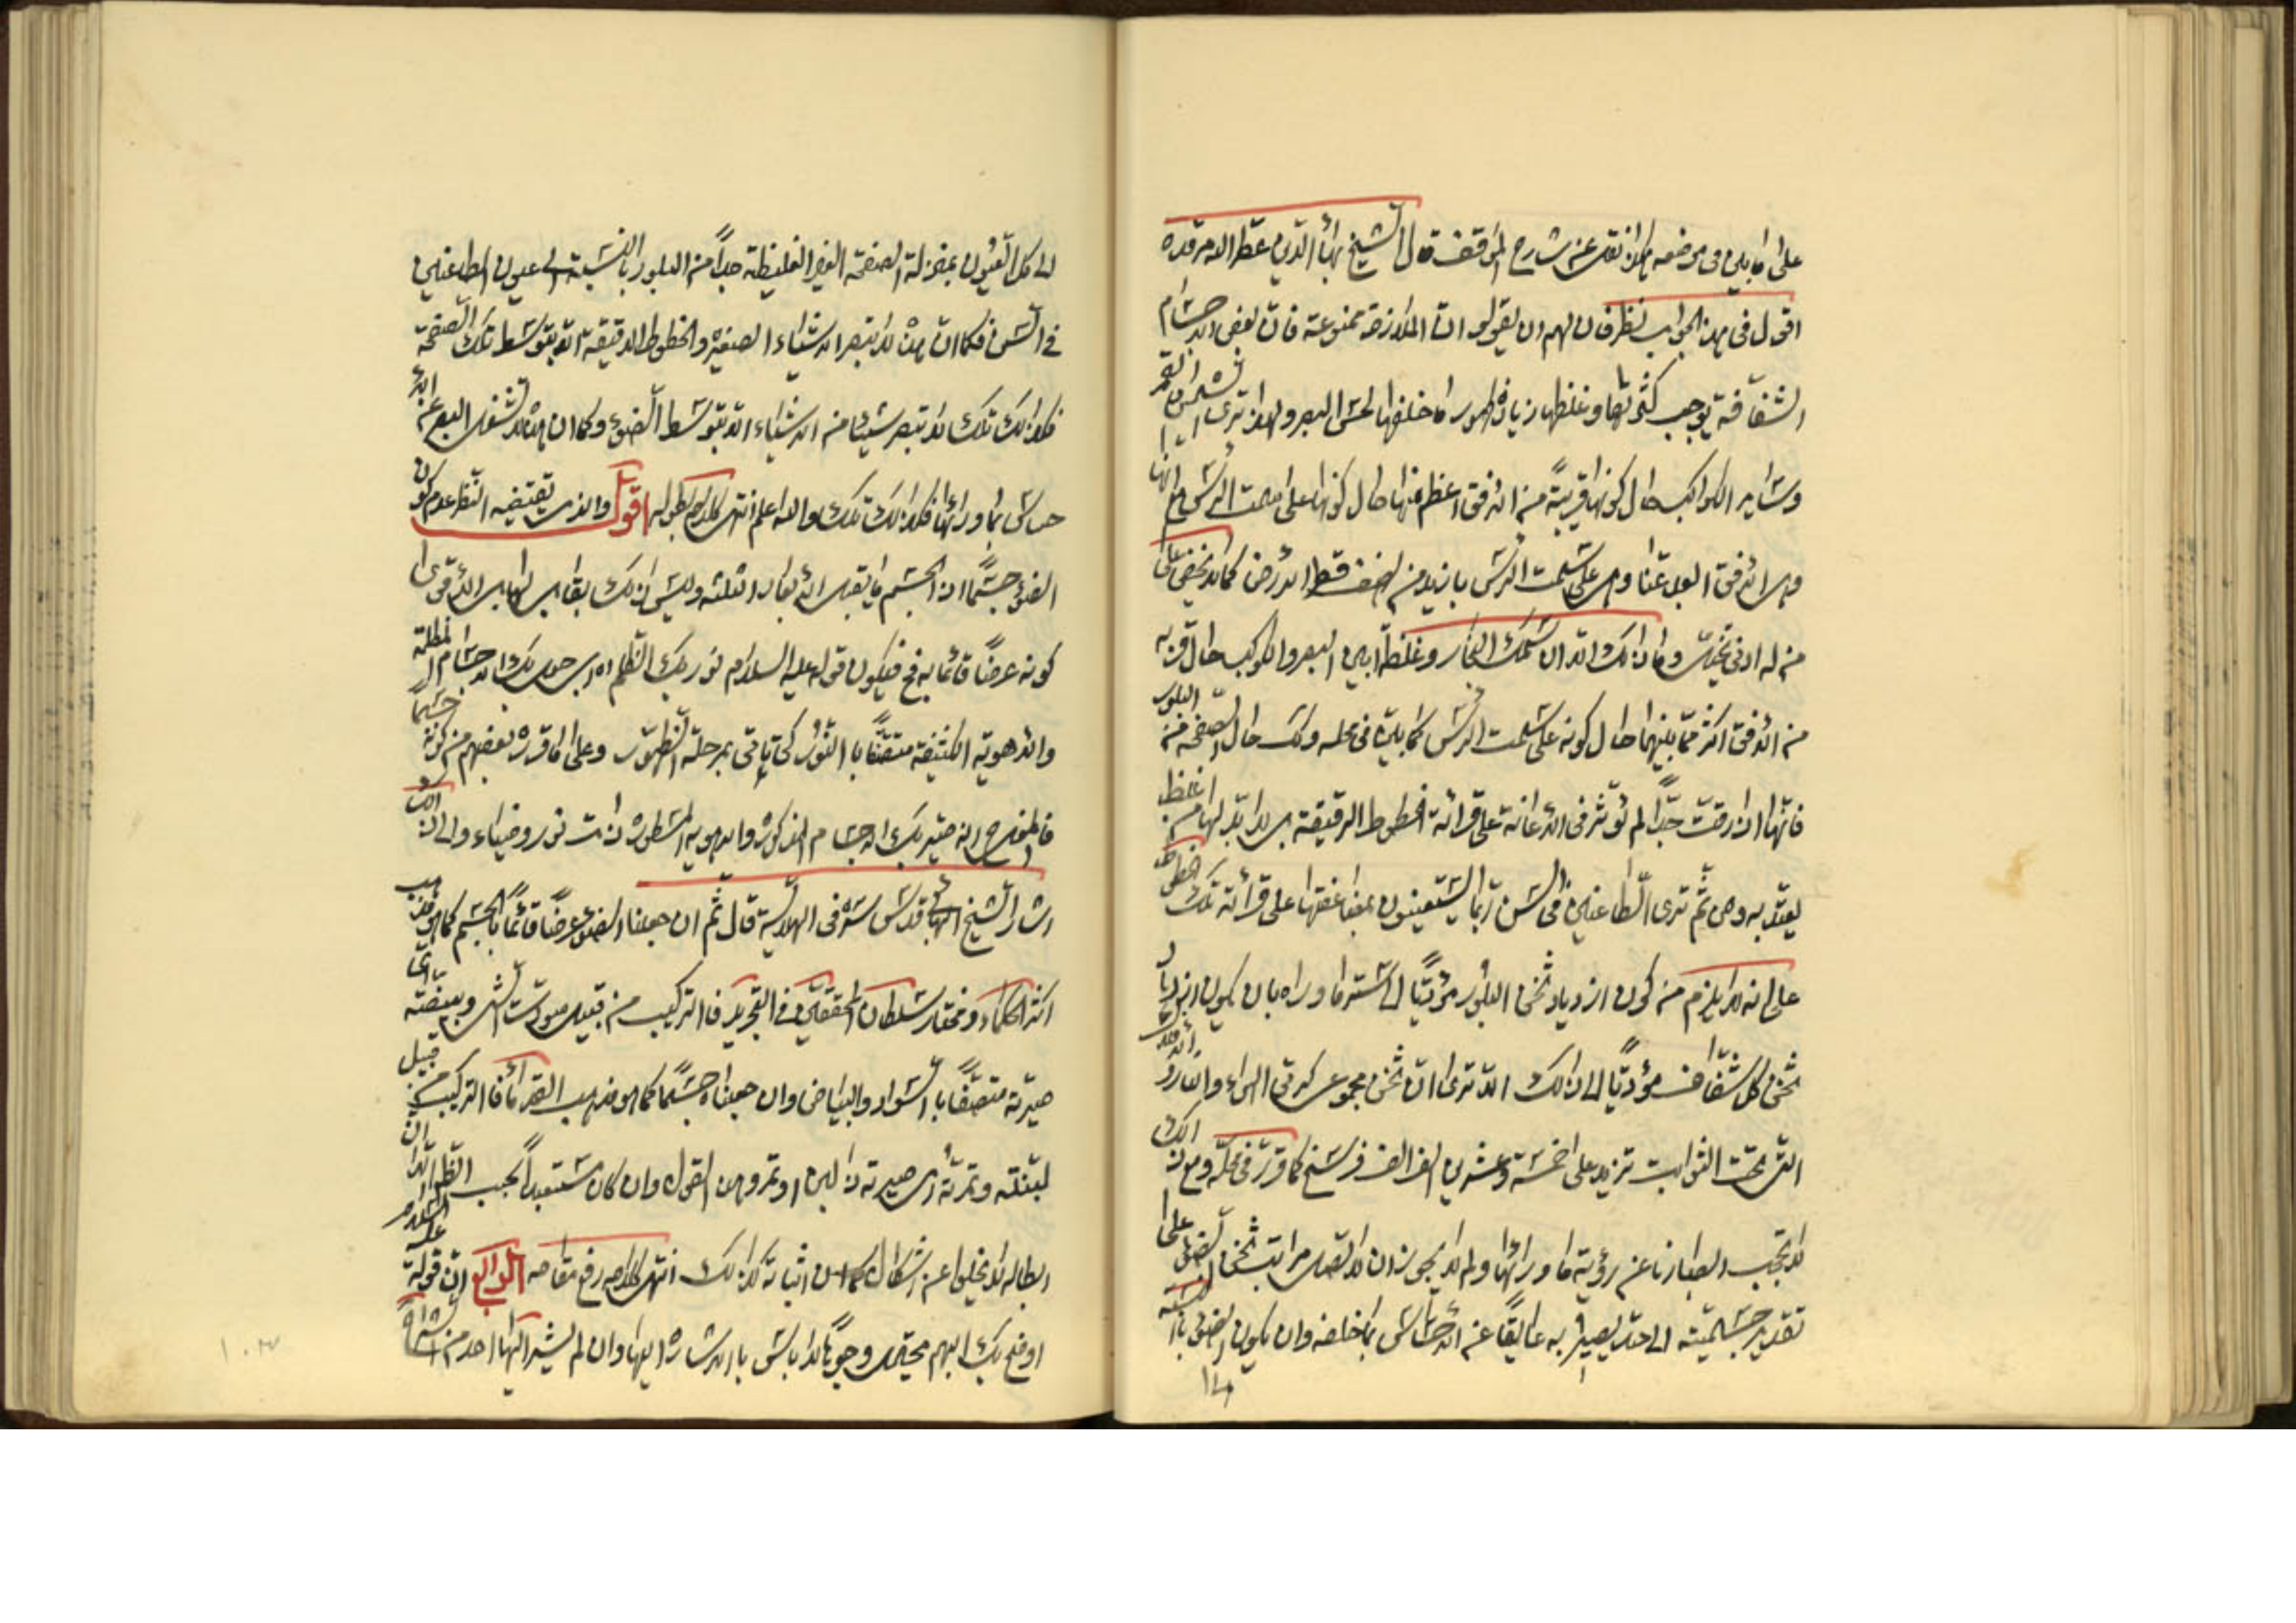 على ما بين في موضعه هكذا نقل عن شارح المواقف قال الشيخ بهاء الدين عطر الله مرقده
اقول في هذا الجواب نظر فان لهم ان يقولوا ان الملازمة ممنوعة فان بعض الاجسام
الشفافة يوجب كثرتها وغلظها زيادة ظهور ما خلفها لحس البصر ولهذا ترى الشمس والقمر
وساير الكواكب حال كونها قريبة من الافق اعظم منها حال كونها على سمت الراس مع انها
وهي الافق ابعد عنا وهي على سمت الراس بازيد من نصف قطر الارض كما لا يخفى على
من له ادنى تخيل وما ذلك الا لان سمك البخار وغلظه بين البصر والكوكب حال قربه
من الافق اكثر مما بينهما حال كونه على سمت الراس كما بين في محله وكذلك حال الصفحة من البلور
فانها اذا رقت جدا لم تؤثر في الاعانة على قرائة الخطوط الرقيقة بل لا بد لها من غلظ
يعتد به ومن ثم ترى الطاعنين في السن ربما يستعينون بمضاعفتها على قرائة تلك الخطوط
على انه لا يلزم من كون ازدياد ثخن البلور مؤديا الى ستر ما وراه بان يكون ازدياد
ثخن كل شفاف مؤديا الى ذلك الا ترى ان ثخن مجموع كرتي الهواء والنار و الافلاك
التي تحت الثوابت تزيد على خمسة وعشرين الف الف فرسخ كما قرر في محله ومع ذلك
لا تحجب ابصارنا عن رؤية ما ورائها ولم لا يجوز ان لا تصل مراتب ثخن الضوء على
تقدير جسميته الى حد يصير به عايقا عن الاحساس بما خلفه وان يكون الضوء بالنسبة
الى كل العيون بمنزلة الصفحة الغير الغليظة جدا من البلور بالنسبة الى عيون الطاعنين
في السن فكما ان هذه لا تبصر الاشياء الصغيرة والخطوط الدقيقة الا بتوسط تلك الصفحة
فكذلك تلك لا تبصر شيئا من الاشياء الا بتوسط الضوء وكما ان هذه لا تشغل البصر عن
حساس بما ورائها فكذلك تلك والله اعلم انتهى كلامه بطوله اقول والذي يقتضيه النظر عدم كون
الضوء جسما اذ الجسم ما يقبل الابعاد الثلثة وليس ذلك بقابل لها بل الاقوى
كونه عرضا قائما به فح فيكون قوله عليه السلام نور بك الظلم اه اي جعل بك الاجسام المظلمة
والاهوية الكثيفة متصفا بالنور كي ياتي بمرحلة الظهور وعلى ما قرره بعضهم من كونه جسما
فالمفاد انه صير بك الاجسام المذكورة والاهوية المسطورة ذات نور وضياء والى ذلك
اشار الشيخ البهائي قدس سره في الهلالية قال ثم ان جعلنا الضوء عرضا قائما بالجسم كما هو مذهب
اكثر الحكماء ومختار سلطان المحققين في التجريد فالتركيب من قبيل سودت الشيء وبيضته اي
صيرته متصفا بالسواد والبياض وان جعلناه جسما كما هو مذهب القدماء فالتركيب من قبيل
لبنته وتمرته اي صيرته ذا لبن او تمر وهذا القول وان كان مستبعدا بحسب الظاهر الا ان
ابطاله لا يخلوا عن اشكال كما ان اثباته كذلك انتهى كلامه رفع مقامه الرابع ان قوله عليه السلام
اوضح بك البهم محتمل وجوها لا باس بالاشارة اليها وان لم يشر اليها احد من الشراح